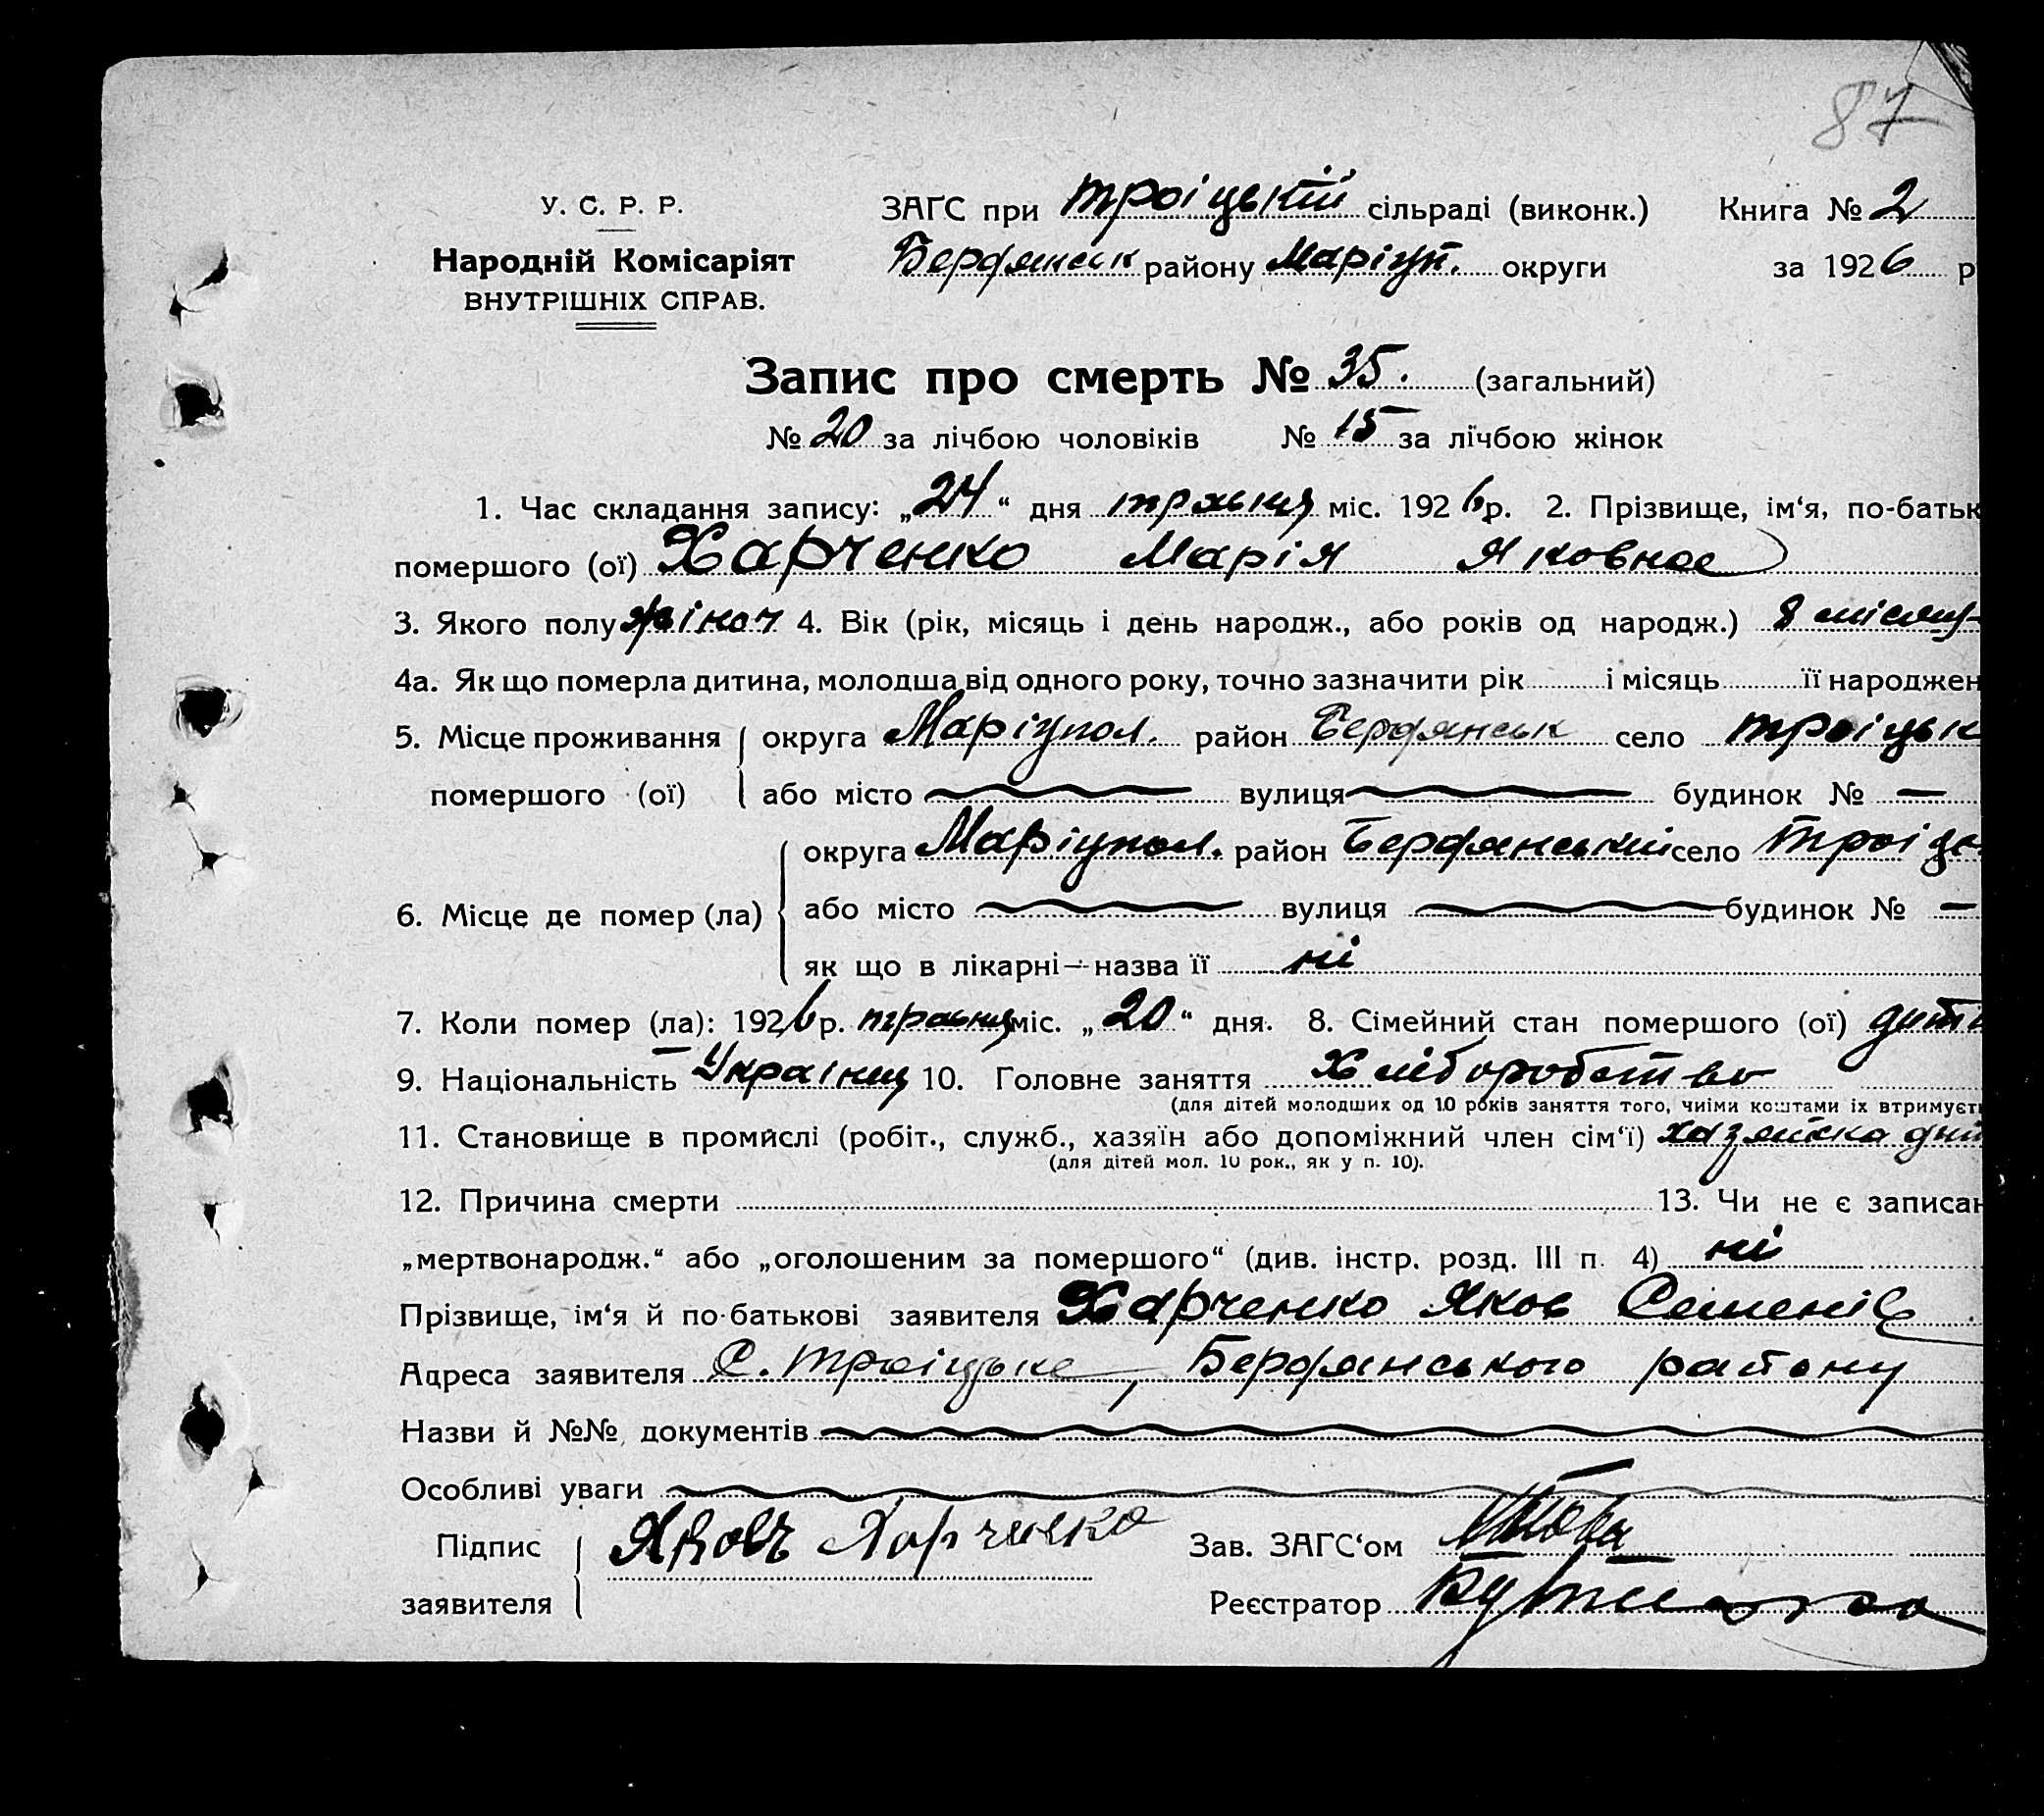 87
У. С. Р. Р.
ЗАГС при Троіцькій сільраді (виконк.) Книга № 2
Народній Комісаріят
Бердянськ району Маріуп. округи за 1926 р
ВНУТРІШНІХ СПРАВ.
Запис про смерть № 35. (загальний)
№ 20 за лічбою чоловіків № 15 за лічбою жінок
1. Час складання запису: „24“ дня травня міс. 1926 р. 2. Прізвище, ім‘я, по-батьк
помершого (ої) Харченко Марія Яковна
3. Якого полу жіноч 4. Вік (рік, місяць і день народж., або років од народж.) 8 місяц
4а. Як що померла дитина, молодша від одного року, точно зазначити рік і місяць її народжен
5. Місце проживання округа Маріупол. район Бердянськ село Троіцьк
помершого (ої) або місто вулиця будинок № —
округа Маріупол. район Бердянський село Троіць
6. Місце де помер (ла) або місто вулиця будинок № —
як що в лікарні—назва її ні
7. Коли помер (ла): 1926 р. травня міс. „20“ дня. 8. Сімейний стан помершого (ої) дити
9. Національність Українц 10. Головне заняття Хліборобство
(для дітей молодших од 10 років заняття того, чиїми коштами їх втримуєт
11. Становище в промислі (робіт., служб., хазяїн або допоміжний член сім‘ї)
(для дітей мол. 10 рок., як у п. 10).
12. Причина смерти 13. Чи не є записан
„мертвонародж.“ або „оголошеним за помершого“ (див. інстр. розд. III п. 4) ні
Прізвище, ім‘я й по-батькові заявителя Харченко Яков Семенів
Адреса заявителя С. Троіцьке, Бердянського району
Назви й №№ документів
Особливі уваги
Підпис Яковъ Харченко Зав. ЗАГС‘ом
заявителя Реєстратор